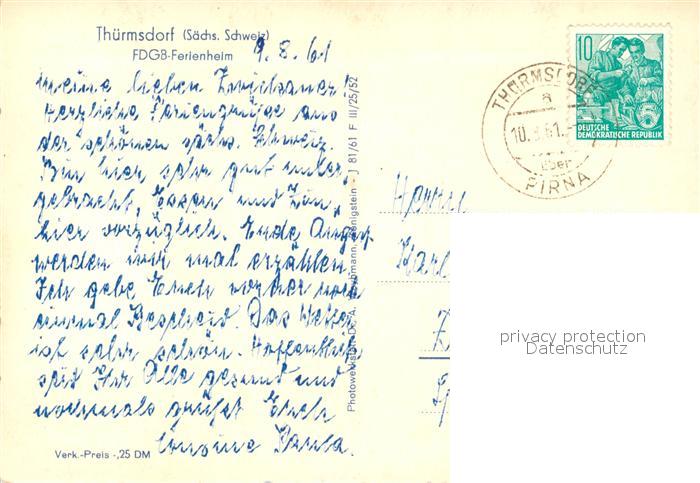 Thürmsdorf (Sächs. Schweiz)
FDGB-Ferienheim
9. 8. 61
meine lieben
Herzliche Feriengrüße aus
der schönen sächs. Schweiz.
Bin hier sehr gut unter-
gebracht, Essen und Zim-
mer vorzüglich. Ende August
werden wir mal erzählen.
Ich gebe Euch vorher noch
einmal Bescheid. Das Wetter
ist sehr schön. Hoffentlich
seid Ihr Alle gesund und
nochmals grüßt Euch
Paula.
Verk.-Preis -,25 DM
Königstein - J 81/61 F III/25/52
Herrn
Karl
10
DEUTSCHE
DEMOKRATISCHE REPUBLIK
THÜRMSDORF
a
10.8.61.-
über
PIRNA
privacy protection
Datenschutz